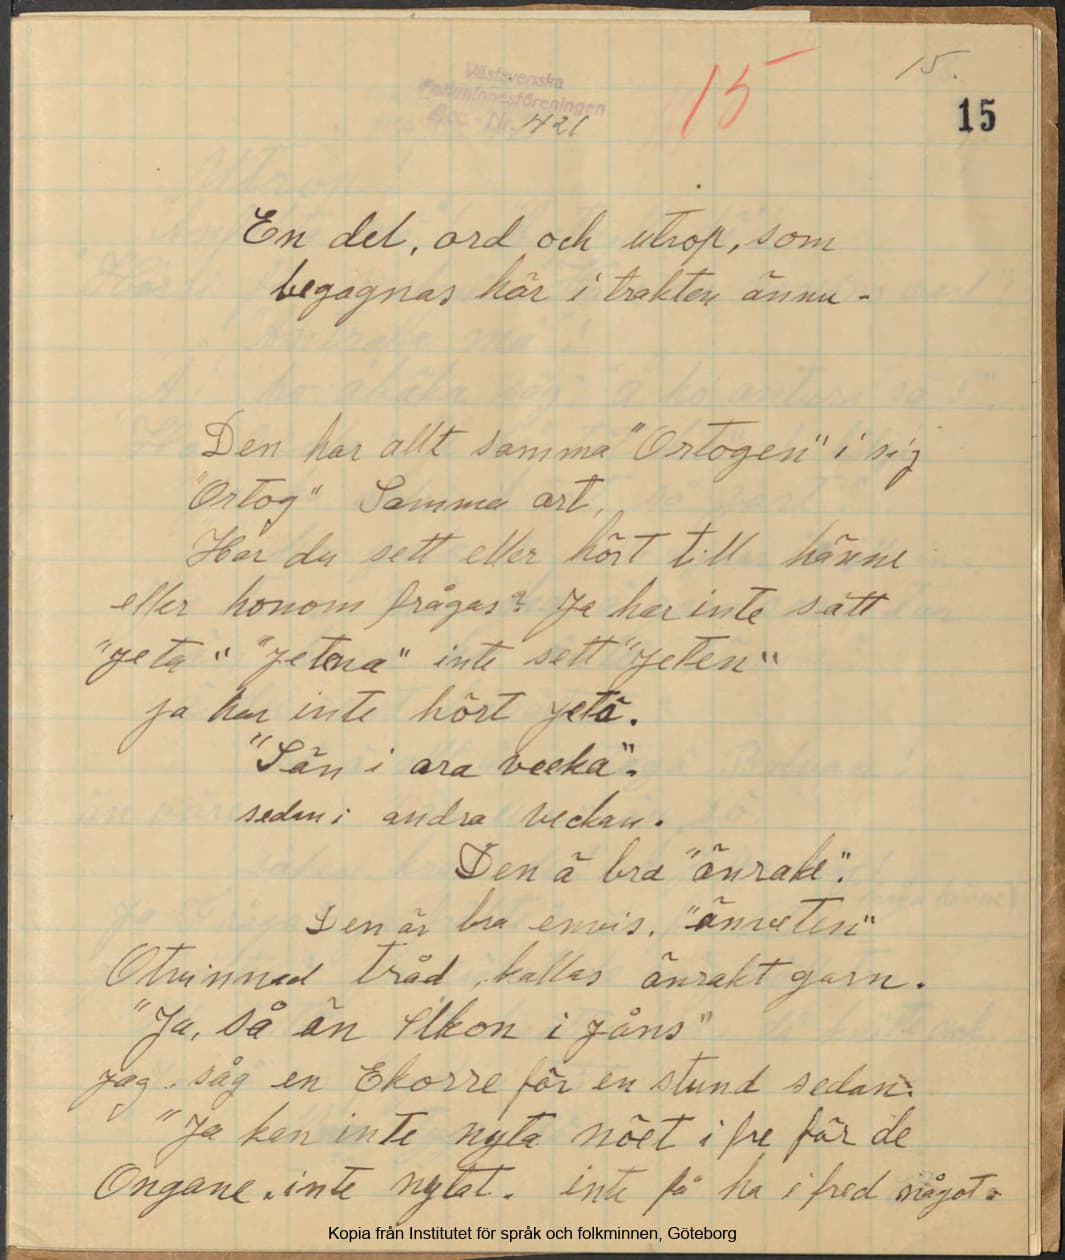 Västsvenska
Folkminnesföreningen
Acc.-Nr. 421
15
15.
15
En del, ord och utrop, som
begagnas här i trakten ännu -
Den har allt samma "Ortogen" i sig
"Ortog" Samma art,
Har du sett eller hört till hänne
eller honom frågas? Ja har inte sätt
"jeta" "jetena" inte sett "jeten"
ja har inte hört jetä.
"Sän i ara veeka".
sedan i andra veckan.
Den ä bra "änrake".
Den är bra envis. "änveten"
Otvinnad tråd, kallas änrakt garn.
"Ja, så än Ilkon i jåns"
jag såg en Ekorre för en stund sedan.
"Ja kan inte nyta nöet i fre för de
Ongane. inte nytat. inte få ha i fred något.
Kopia från Institutet för språk och folkminnen, Göteborg